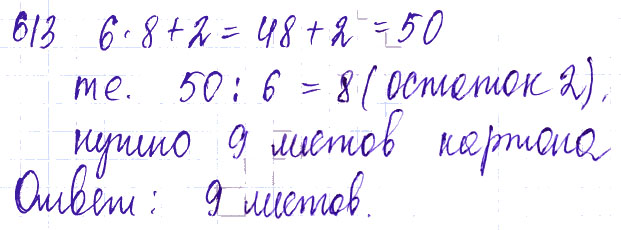 613 6·8+2=48+2=50
т.е. 50:6=8(остаток 2).
нужно 9 листов картона
Ответ: 9 листов.